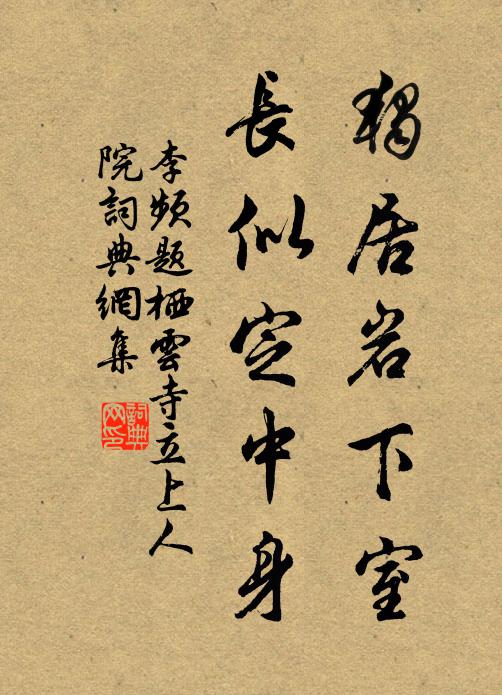 獨居岩下室
長似定中身
李頻題栖雲寺立上人
院詞典網集
詞典
网印